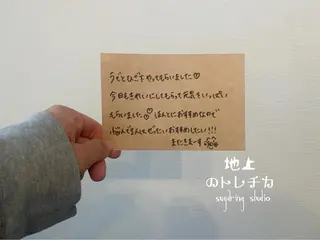 うでとひざ下やってもらいました♡
今日もきれいにしてもらって元気をいっぱい
もらいました♡ ほんとにおすすめなので
悩んでる人にぜったいおすすめしたい!!!
またきまーす
地上
のトレチカ
sugaring studio